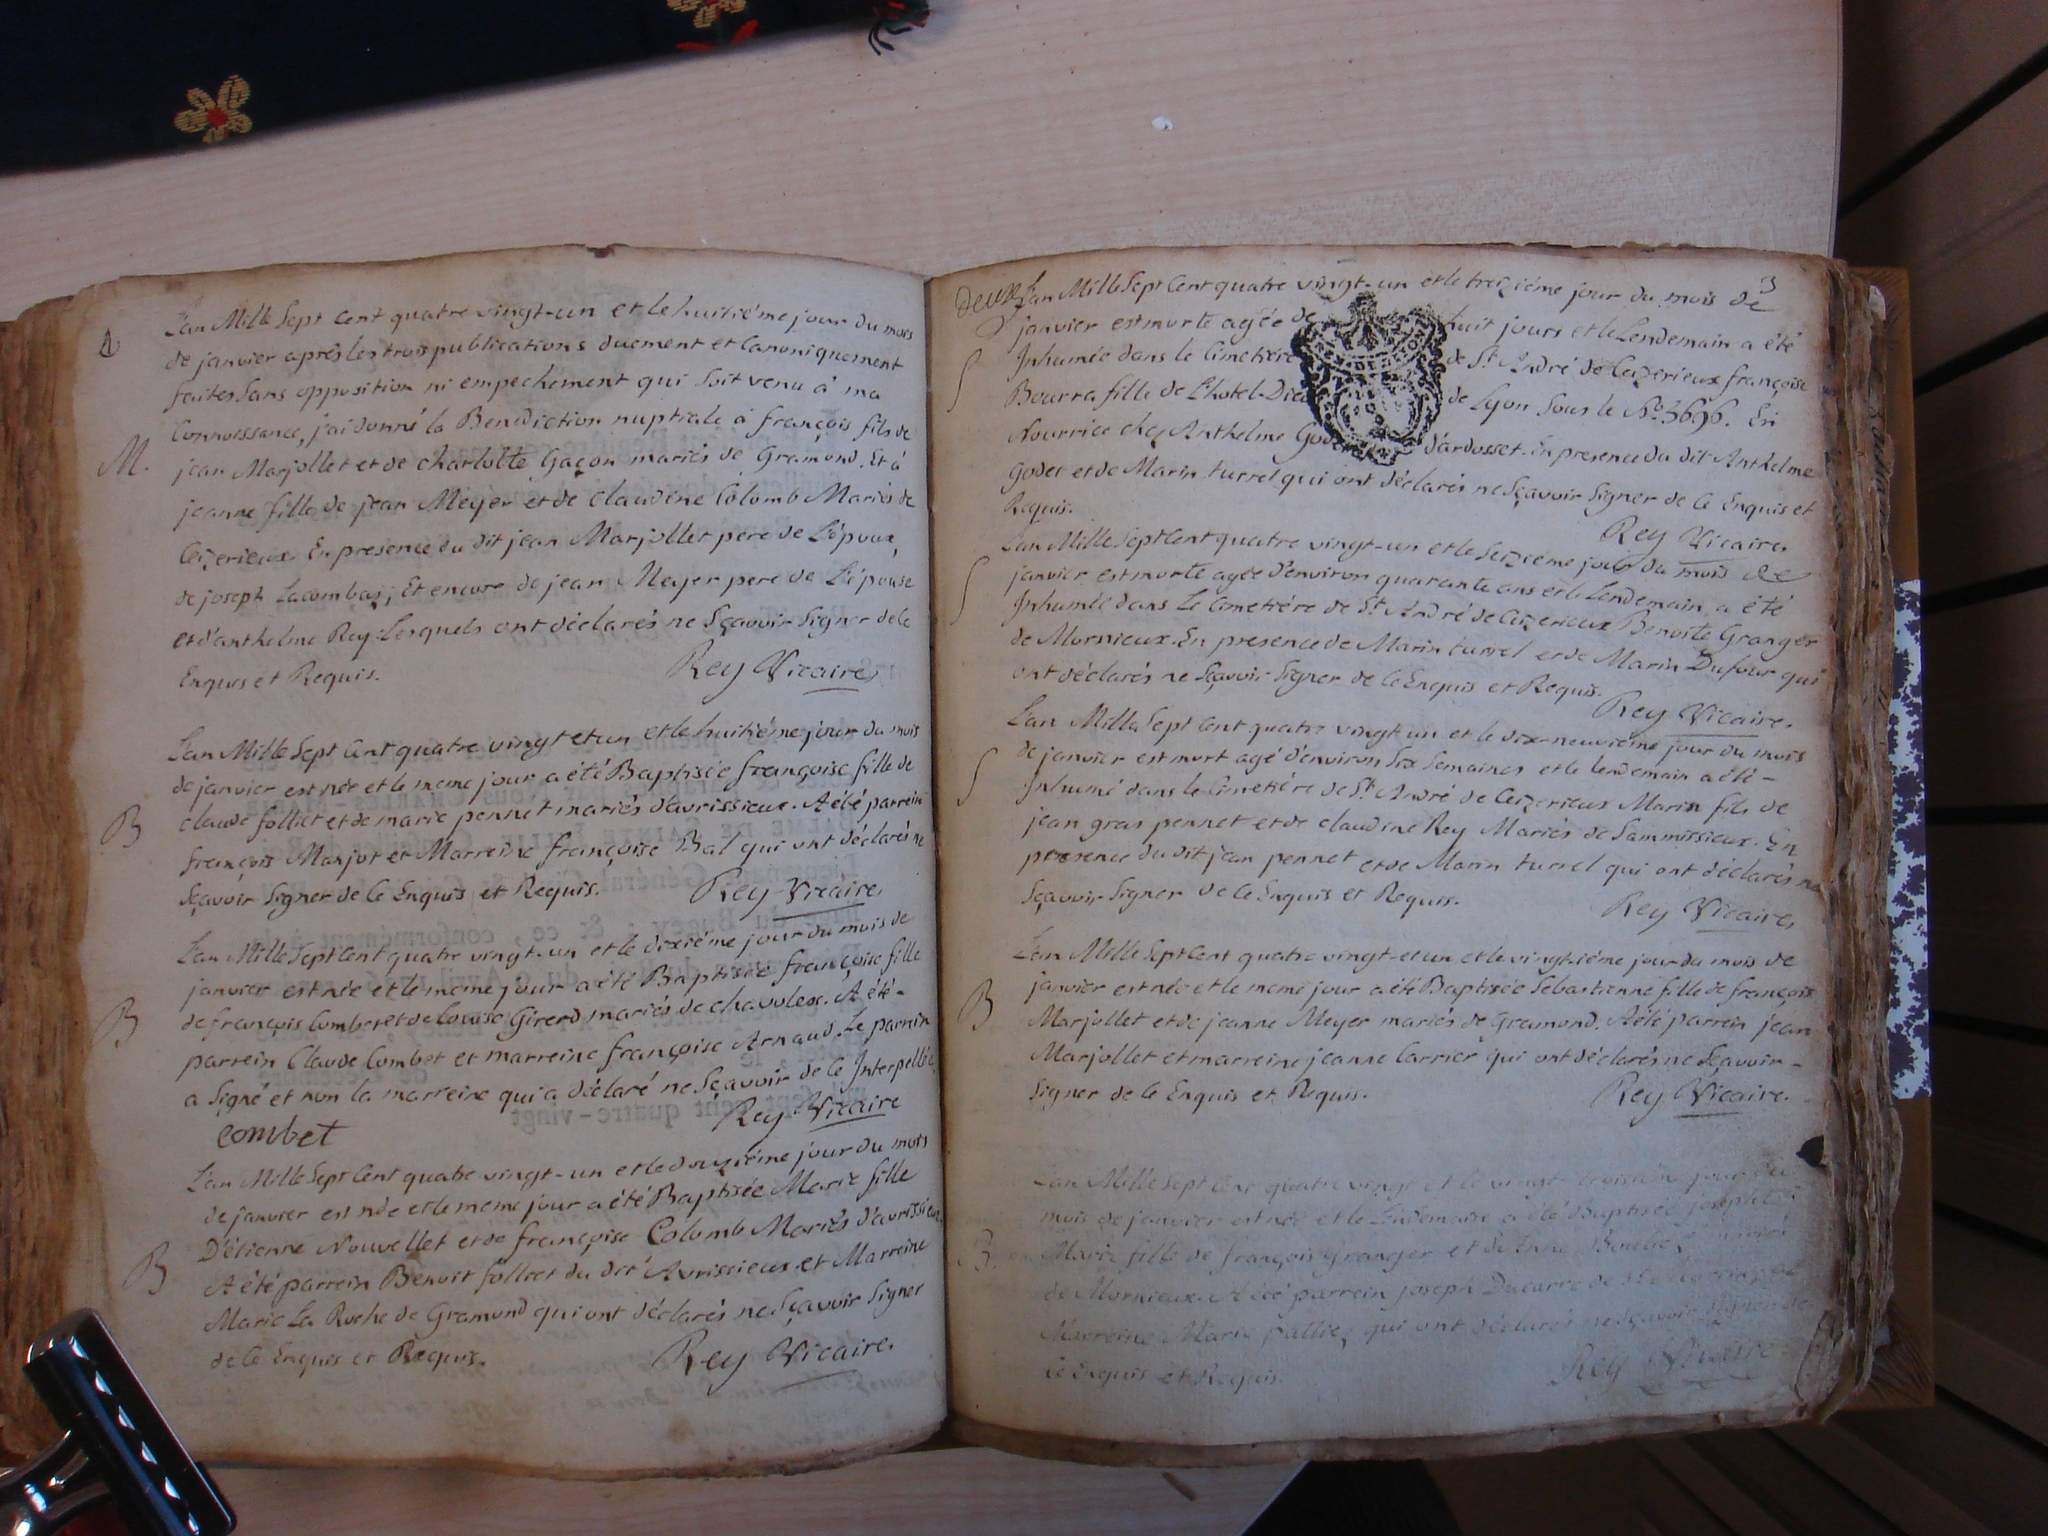 L'an Mille Sept Cent quatre vingt-un et le huitiéme jour du mois
de janvier aprés les trois publications duement et Canoniquement
faites Sans opposition ni empechement qui soit venu à ma
Connoissance, j'ai donné la Benediction nuptiale à françois fils de
M. jean Marjollet et de charlotte Gaçon mariés de Gramond. Et à
jeanne fille de jean Meyer et de claudine Colomb Mariés de
Ceizerieux En presence du dit jean Marjollet pere de L'époux,
de joseph Lacombaz; Et encore de jean Meyer pere de L'épouse
et d'anthelme Rey. Lesquels ont déclarés ne Sçavoir Signer de Ce
Enquis et Requis. Rey Vicaire
L'an Mille Sept Cent quatre vingt et un et le huitiéme jour du mois
de janvier est née et le meme jour a été Baptisée françoise fille de
B claude folliet et de marie pennet mariés d'avrissieux. A été parrein
françois Marjot et Marreine françoise Bal qui ont déclarés ne
Sçavoir Signer de Ce Enquis et Requis. Rey Vicaire
L'an Mille Sept Cent quatre vingt-un et le dixiéme jour du mois de
janvier est née et le meme jour a été Baptisée françoise fille
B de françois Combet et de Louise Girerd mariés de chavolex. A été-
parrein Claude Combet et marreine françoise Arnaud. Le parrein
a Signé et non la marreine qui a déclaré ne Sçavoir de Ce Interpellée
Combet Rey Vicaire
L'an Mille Sept Cent quatre vingt-un et le douziéme jour du mois
de janvier est née et le meme jour a été Baptisée Marie fille
D'étienne Nouvellet et de françoise Colomb Mariés d'avrissieux.
B A été parrein Benoit folliet du dit Avrissieux et Marreine
Marie La Roche de Gramond qui ont déclarés ne Sçavoir Signer
de Ce Enquis et Requis. Rey Vicaire.
deux 3
L'an Mille Sept Cent quatre vingt-un et le treiziéme jour du mois de
janvier est morte agée de huit jours et le Lendemain a été
S Inhumée dans le Cimetiére de St. André de Ceizerieux françoise
Bourra fille de L'hotel-Dieu de Lyon Sous le No. 3696. En
Nourrice chez Anthelme Godet d'ardosset. En presence du dit Anthelme
Godet et de Marin turrel qui ont déclarés ne Sçavoir Signer de Ce Enquis et
Requis. Rey Vicaire.
L'an Mille Sept Cent quatre vingt-un et le Seiziéme jour du mois de
S janvier est morte agée d'environ quarante ans et le Lendemain a été
Inhumée dans Le Cimetiére de St. André de Ceizerieux Benoite Granger
de Mornieux. En presence de Marin turrel et de Marin Dufour qui
ont déclarés ne Sçavoir Signer de Ce Enquis et Requis. Rey Vicaire.
L'an Mille Sept Cent quatre vingt un et le dix-neuviéme jour du mois
S de janvier est mort agé d'environ Six Semaines et le lendemain a été-
Inhumé dans le Cimetiére de St. André de Ceizerieux Marin fils de
jean gras pennet et de claudine Rey Mariés de Sammissieux. En
presence du dit jean pennet et de Marin turrel qui ont déclarés ne
Sçavoir Signer de Ce Enquis et Requis. Rey Vicaire,
L'an Mille Sept Cent quatre vingt-et un et le vingtiéme jour du mois de
janvier est née et le meme jour a été Baptisée Sébastienne fille de françois
B Marjollet et de jeanne Meyer mariés de Gramond. A été parrein jean
Marjollet et marreine jeanne Carrier qui ont déclarés ne Sçavoir-
Signer de Ce Enquis et Requis. Rey Vicaire.
L'an Mille Sept Cent quatre vingt et le vingt-troisiém jour du
mois de janvier est née et le Lendemain a été Baptisée josephte
B. Marie fille de françois Granger et de
de Mornieux. A été parrein joseph Ducarre de
Marreine Marie pallie, qui ont déclarés ne Sçavoir Signer de
Ce Enquis et Requis. Rey Vicaire